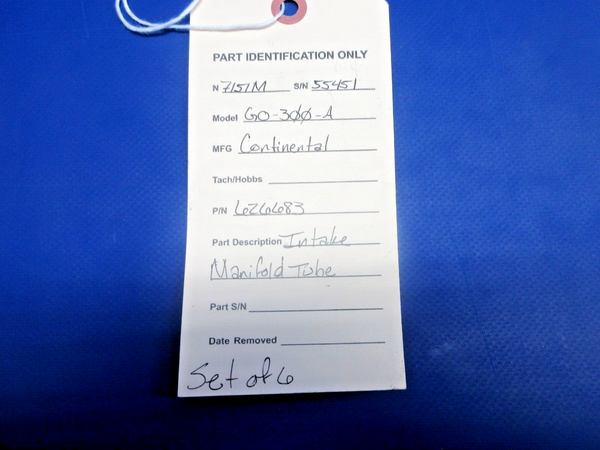 PART IDENTIFICATION ONLY
N 7151M S/N 55451
Model GO-300-A
MFG Continental
Tach/Hobbs
P/N 626683
Part Description Intake
Manifold Tube
Part S/N
Date Removed
Set of 6